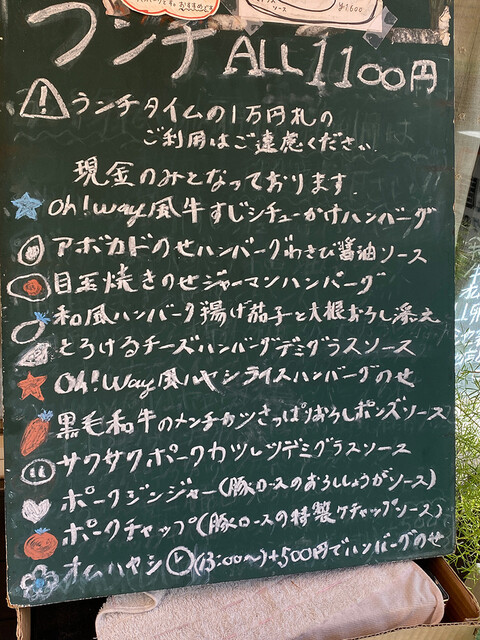 おすすめです
ソース ¥1600
ランチ ALL 1100円
ランチタイムの1万円札の
ご利用はご遠慮ください。
現金のみとなっております。
Oh!Way風牛すじシチューかけハンバーグ
アボカドのせハンバーグわさび醤油ソース
目玉焼きのせジャーマンハンバーグ
和風ハンバーグ揚げ茄子と大根おろし添え
とろけるチーズハンバーグデミグラスソース
Oh!Way風ハヤシライスハンバーグのせ
黒毛和牛のメンチカツさっぱりおろしポンズソース
サクサクポークカツレツデミグラスソース
ポークジンジャー(豚ロースのおろししょうがソース)
ポークチャップ(豚ロースの特製ケチャップソース)
オムハヤシ(13:00〜)+500円でハンバーグのせ